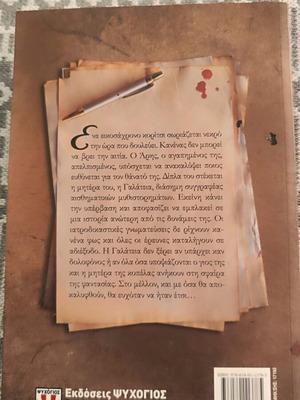 Ένα εικοσάχρονο κορίτσι σωριάζεται νεκρό
την ώρα που δουλεύει. Κανένας δεν μπορεί
να βρει την αιτία. Ο Άρης, ο αγαπημένος της,
απελπισμένος, υπόσχεται να ανακαλύψει ποιος
ευθύνεται για τον θάνατό της. Δίπλα του στέκεται
η μητέρα του, η Γαλάτεια, διάσημη συγγραφέας
αισθηματικών μυθιστορημάτων. Εκείνη κάνει
την υπέρβαση και αποφασίζει να εμπλακεί σε
μια ιστορία ανώτερη από τις δυνάμεις της. Οι
ιατροδικαστικές γνωματεύσεις δε ρίχνουν κα-
νένα φως και όλες οι έρευνες καταλήγουν σε
αδιέξοδο. Η Γαλάτεια δεν ξέρει αν υπάρχει καν
δολοφόνος ή αν όλα όσα υποψιάζονται ο γιος της
και η μητέρα της κοπέλας ανήκουν στη σφαίρα
της φαντασίας. Στο μέλλον, και με όσα θα απο-
καλυφθούν, θα ευχόταν να ήταν έτσι...
ΨΥΧΟΓΙΟΣ
Εκδόσεις ΨΥΧΟΓΙΟΣ